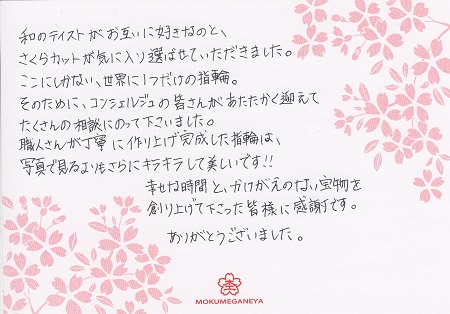 和のテイストがお互いに好きなのと、
さくらカットが気に入り選ばせていただきました。
ここにしかない、世界に1つだけの指輪。
そのために、コンシェルジュの皆さんがあたたかく迎えて
たくさんの相談にのって下さいました。
職人さんが丁寧に作り上げ完成した指輪は、
写真で見るよりもさらにキラキラして美しいです!!
幸せな時間と、かけがえのない宝物を
創り上げて下さった皆様に感謝です。
ありがとうございました。
MOKUMEGANEYA